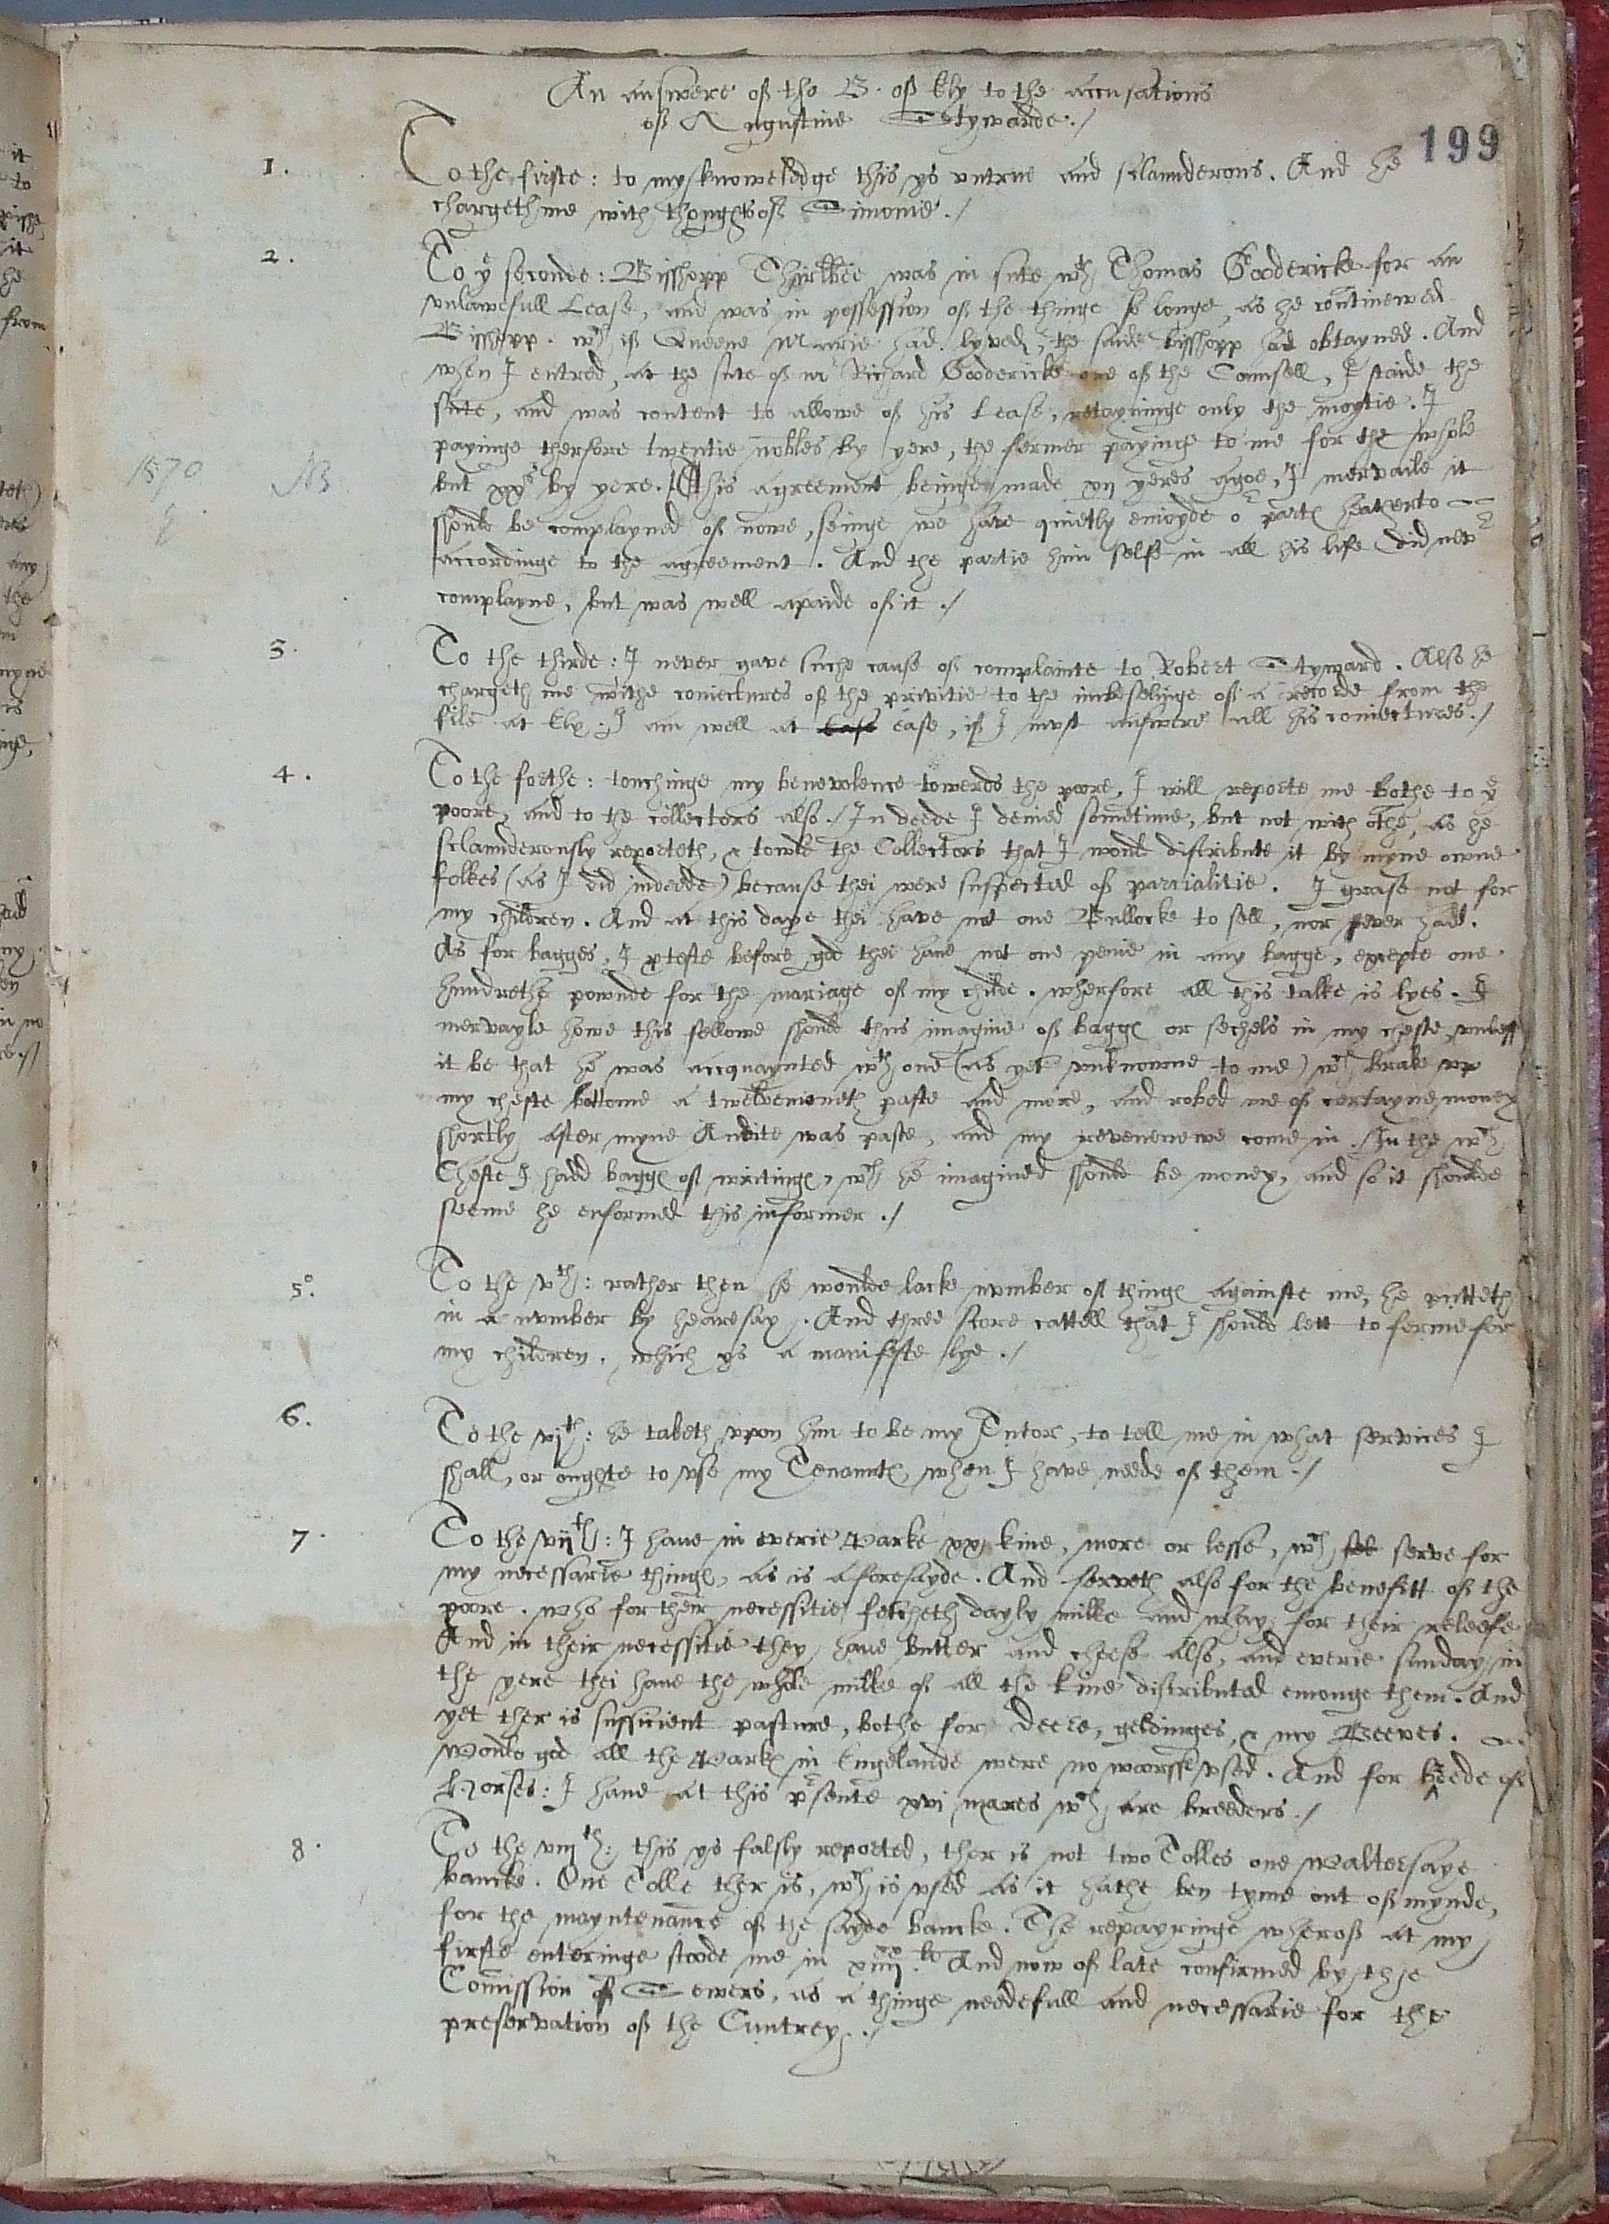 An answere of the B. of Ely to the accusations
of Augustine Stywarde ./
199
1. To the firste: to my knoweledge this ys untrue and sclaunderous. And he
chargeth me with thoughts of Simonie ./
2. To yͤ seconde: Bisshopp Thirlbie was in sute wᵗʰ Thomas Goodericke for an
unlawefull Lease, and was in possession of the thinge so longe, as he continewed
Bisshopp. wᶜʰ if Queene Marie had lyved, the saide bisshopp had obtayned. And
when I entred, at the sute of mʳ Richard Goodericke one of the Counsell, I staide the
sute, and was content to allowe of his Lease, retayninge only the moytie. I
payinge therfore twentie nobles by yere, the fermer payinge to me for the whole
but xxˢ by yere. This agreement beinge made xij yeres agoe, I mervaile it
1570 NB
should be complayned of nowe, seinge we have quietly enioyde oʳ parte heatherto
accordinge to the agreement. And the partie him selfe in all his life did neuʳ
complayne, but was well apaide of it ./
3. To the thirde: I never gave suche cause of complainte to Robert Stywarde. Also he
chargeth me withe coniectures of the privitie to the imbeselinge of a recorde from the
file at Ely: I am well at ease, if I must answere all his coniectures ./
4. To the forthe: touchinge my benevolence towerds the poore, I will reporte me bothe to yͤ
poore, and to the collectors also./ In deede I denied sometime, but not with othe, as he
sclaunderously reporteth, & towlde the Collectors that I would distribute it by myne owne
folkes (as I did indeede) because thei were suspected of parcialitie. I grase not for
my children. And at this daye thei have not one Bullocke to sell, nor never hadd.
As for bagges, I ꝓteste before god thei have not one penie in any bagge, excepte one
hundrethe pownde for the mariage of my childe. wherfore all this talke is lyes. I
mervayle howe this fellowe should thus imagine of bagges or sechels in my cheste, unless
it be that he was accquaynted wᵗʰ one (as yet unknowne to me) wᶜʰ brake up
my cheste bottome a twelvemoneth paste and more, and robed me of certayne money
shortly after myne Audite was paste, and my revenewe come in. In the wᶜʰ
Cheste I hadd bagges of writinges, wᶜʰ he imagined should be money, and so it shoulde
seeme he enformed this informer ./
5°. To the vᵗʰ: rather then he woulde lacke number of thinges againste me, he putteth
in a number by hearesay. And three score cattell that I should lett to ferme for
my children, which ys a manifeste lye ./
6. To the vjᵗʰ: he taketh upon him to be my Tutor, to tell me in what services I
shall, or oughte to use my Tenauntes, when I have neede of them ./
7. To the vijᵗʰ: I have in everie Parke xx kine, more or lesse, wᶜʰ serve for
my necessarie thinges, as is aforesayde. And serveth also for the benefitt of the
poore. who for their necessitie fetcheth dayly milke and whay for their releefe
And in their necessitie they have butter and cheese also, and everie sunday in
the yere thei have the whole milke of all the kine distributed emonge them. And
yet ther is sufficient pasture, bothe for deere, geldinges, & my Beeves.
Would god all the Parkes in Engelande were no worsse used. And for breede of
Horses: I have at this pʳsente xvi mares wᶜʰ are breeders ./
8. To the viijᵗʰ: this ys falsly reported, ther is not two Tolles one Waltersaye
bancke. One Tolle ther is, wᶜʰ is used as it hathe ben tyme out of mynde,
for the mayntenance of the sayde bancke. The repayringe wherof at my
firste enteringe stoode me in And now of late confirmed by the
Comission of Sewers, as a thinge needefull and necessarie for the
preservation of the Cuntrey ./